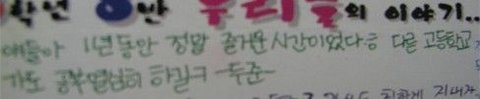 학년 8반 우리들의 이야기..
애들아 1년동안 정말 즐거운 시간이었다ㅎ 다른 고등학교
가도 공부열심히 하길ㅋ -두준-
친하게 지내자